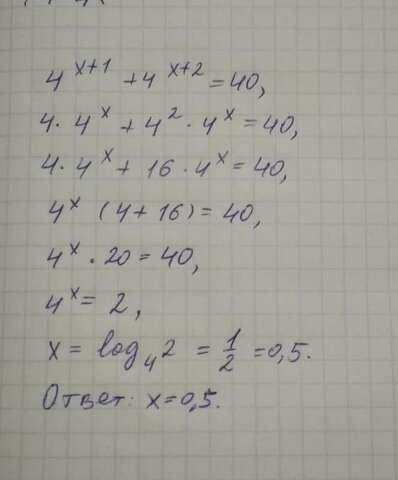 4^{x+1} + 4^{x+2} = 40,
4 · 4^x + 4^2 · 4^x = 40,
4 · 4^x + 16 · 4^x = 40,
4^x (4 + 16) = 40,
4^x · 20 = 40,
4^x = 2,
x = log_4 2 = 1/2 = 0,5.
Ответ: x = 0,5.